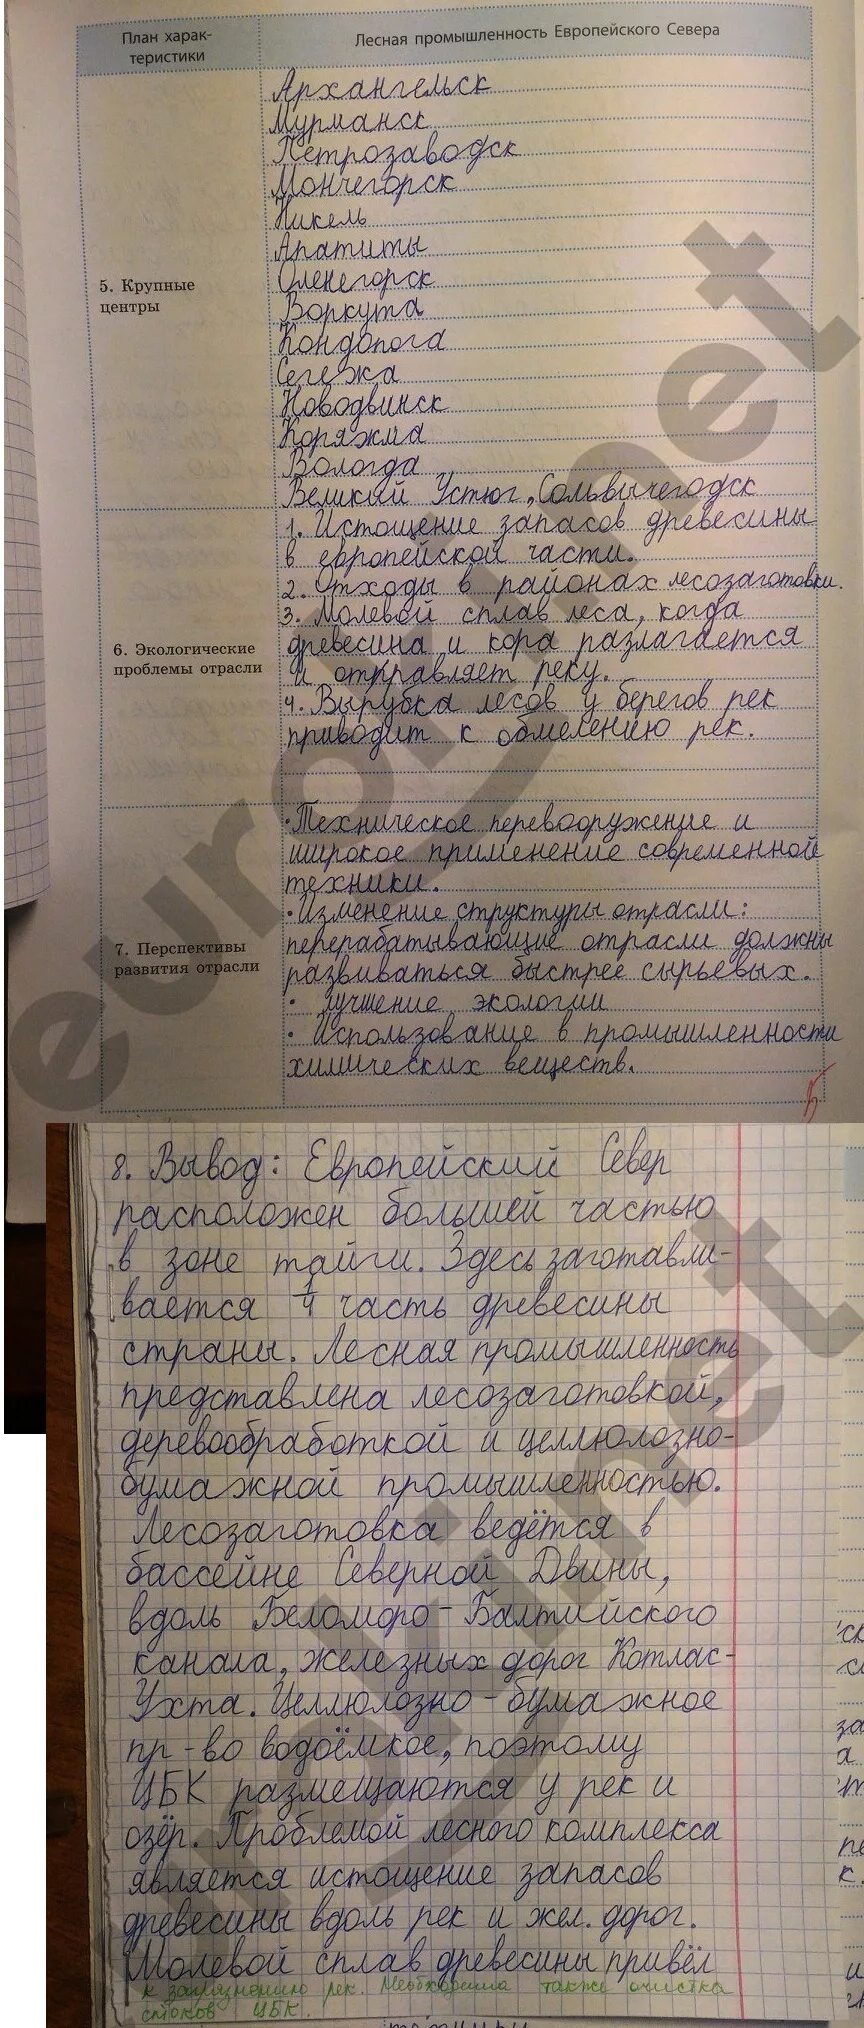 План харак-
теристики
Лесная промышленность Европейского Севера
5. Крупные
центры
Архангельск
Мурманск
Петрозаводск
Мончегорск
Никель
Апатиты
Оленегорск
Воркута
Кондопога
Сегежа
Новодвинск
Коряжма
Вологда
Великий Устюг, Сольвычегодск
6. Экологические
проблемы отрасли
1. Истощение запасов древесины
в европейской части.
2. Отходы в районах лесозаготовки.
3. Молевой сплав леса, когда
древесина и кора разлагается
и отправляет реку.
4. Вырубка лесов у берегов рек
приводит к обмелению рек.
7. Перспективы
развития отрасли
• Техническое перевооружение и
широкое применение современной
техники.
• Изменение структуры отрасли:
перерабатывающие отрасли должны
развиваться быстрее сырьевых.
• лучшение экологии
• Использование в промышленности
химических веществ.
5
8. Вывод: Европейский Север
расположен большей частью
в зоне тайги. Здесь заготавли-
вается 1/4 часть древесины
страны. Лесная промышленность
представлена лесозаготовкой,
деревообработкой и целлюлозно-
бумажной промышленностью.
Лесозаготовка ведётся в
бассейне Северной Двины,
вдоль Беломоро-Балтийского
канала, железных дорог Котлас-
Ухта. Целлюлозно-бумажное
пр-во водоёмкое, поэтому
ЦБК размещаются у рек и
озёр. Проблемой лесного комплекса
является истощение запасов
древесины вдоль рек и жел. дорог.
Молевой сплав древесины привёл
к загрязнению рек. Необходима также очистка
стоков ЦБК.
euroki.net
euroki.net